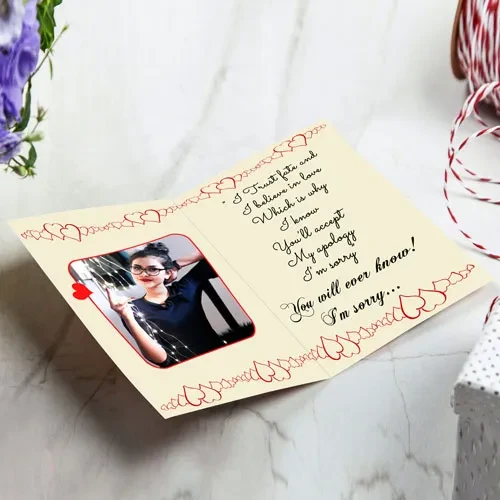 I Trust fate and
I believe in love
Which is why
I know
You'll accept
My apology
I'm sorry
You will ever know!
I'm sorry...